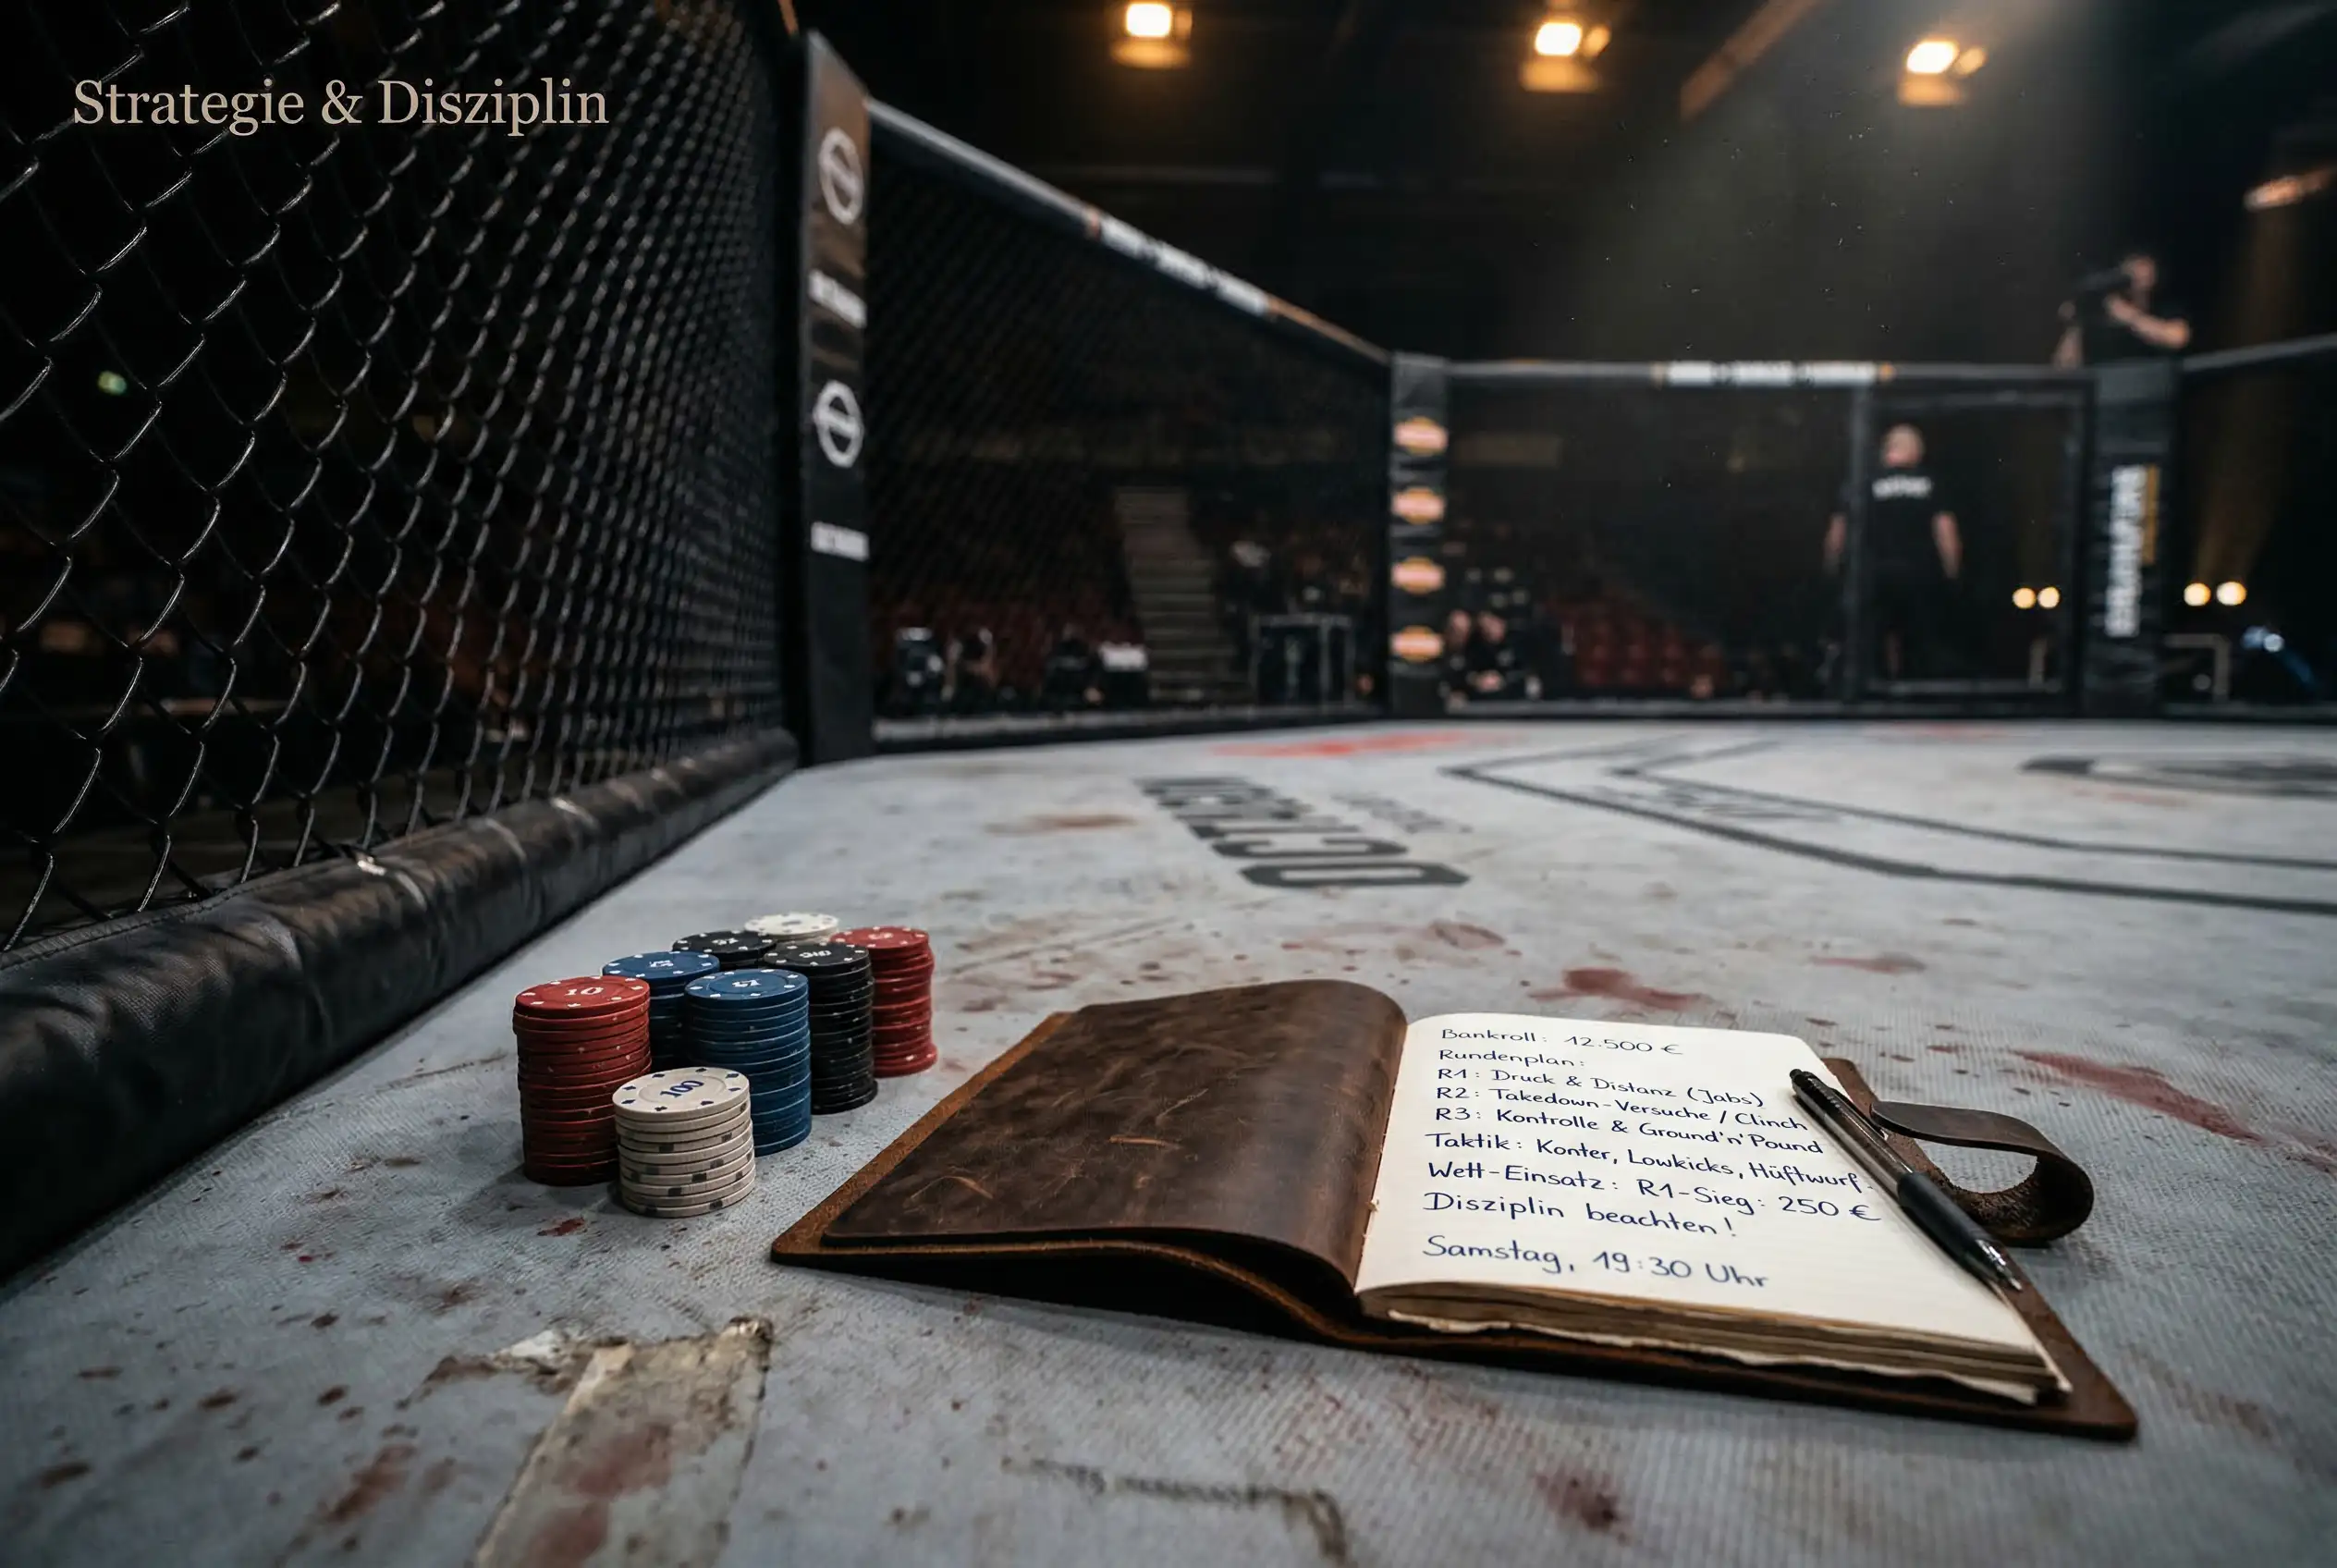 Strategie & Disziplin
OCTAGON
10
100
Bankroll: 12.500 €
Rundenplan:
R1: Druck & Distanz (Jabs)
R2: Takedown-Versuche / Clinch
R3: Kontrolle & Ground'n'Pound
Taktik: Konter, Lowkicks, Hüftwurf.
Wett-Einsatz: R1-Sieg: 250 €
Disziplin beachten!
Samstag, 19:30 Uhr